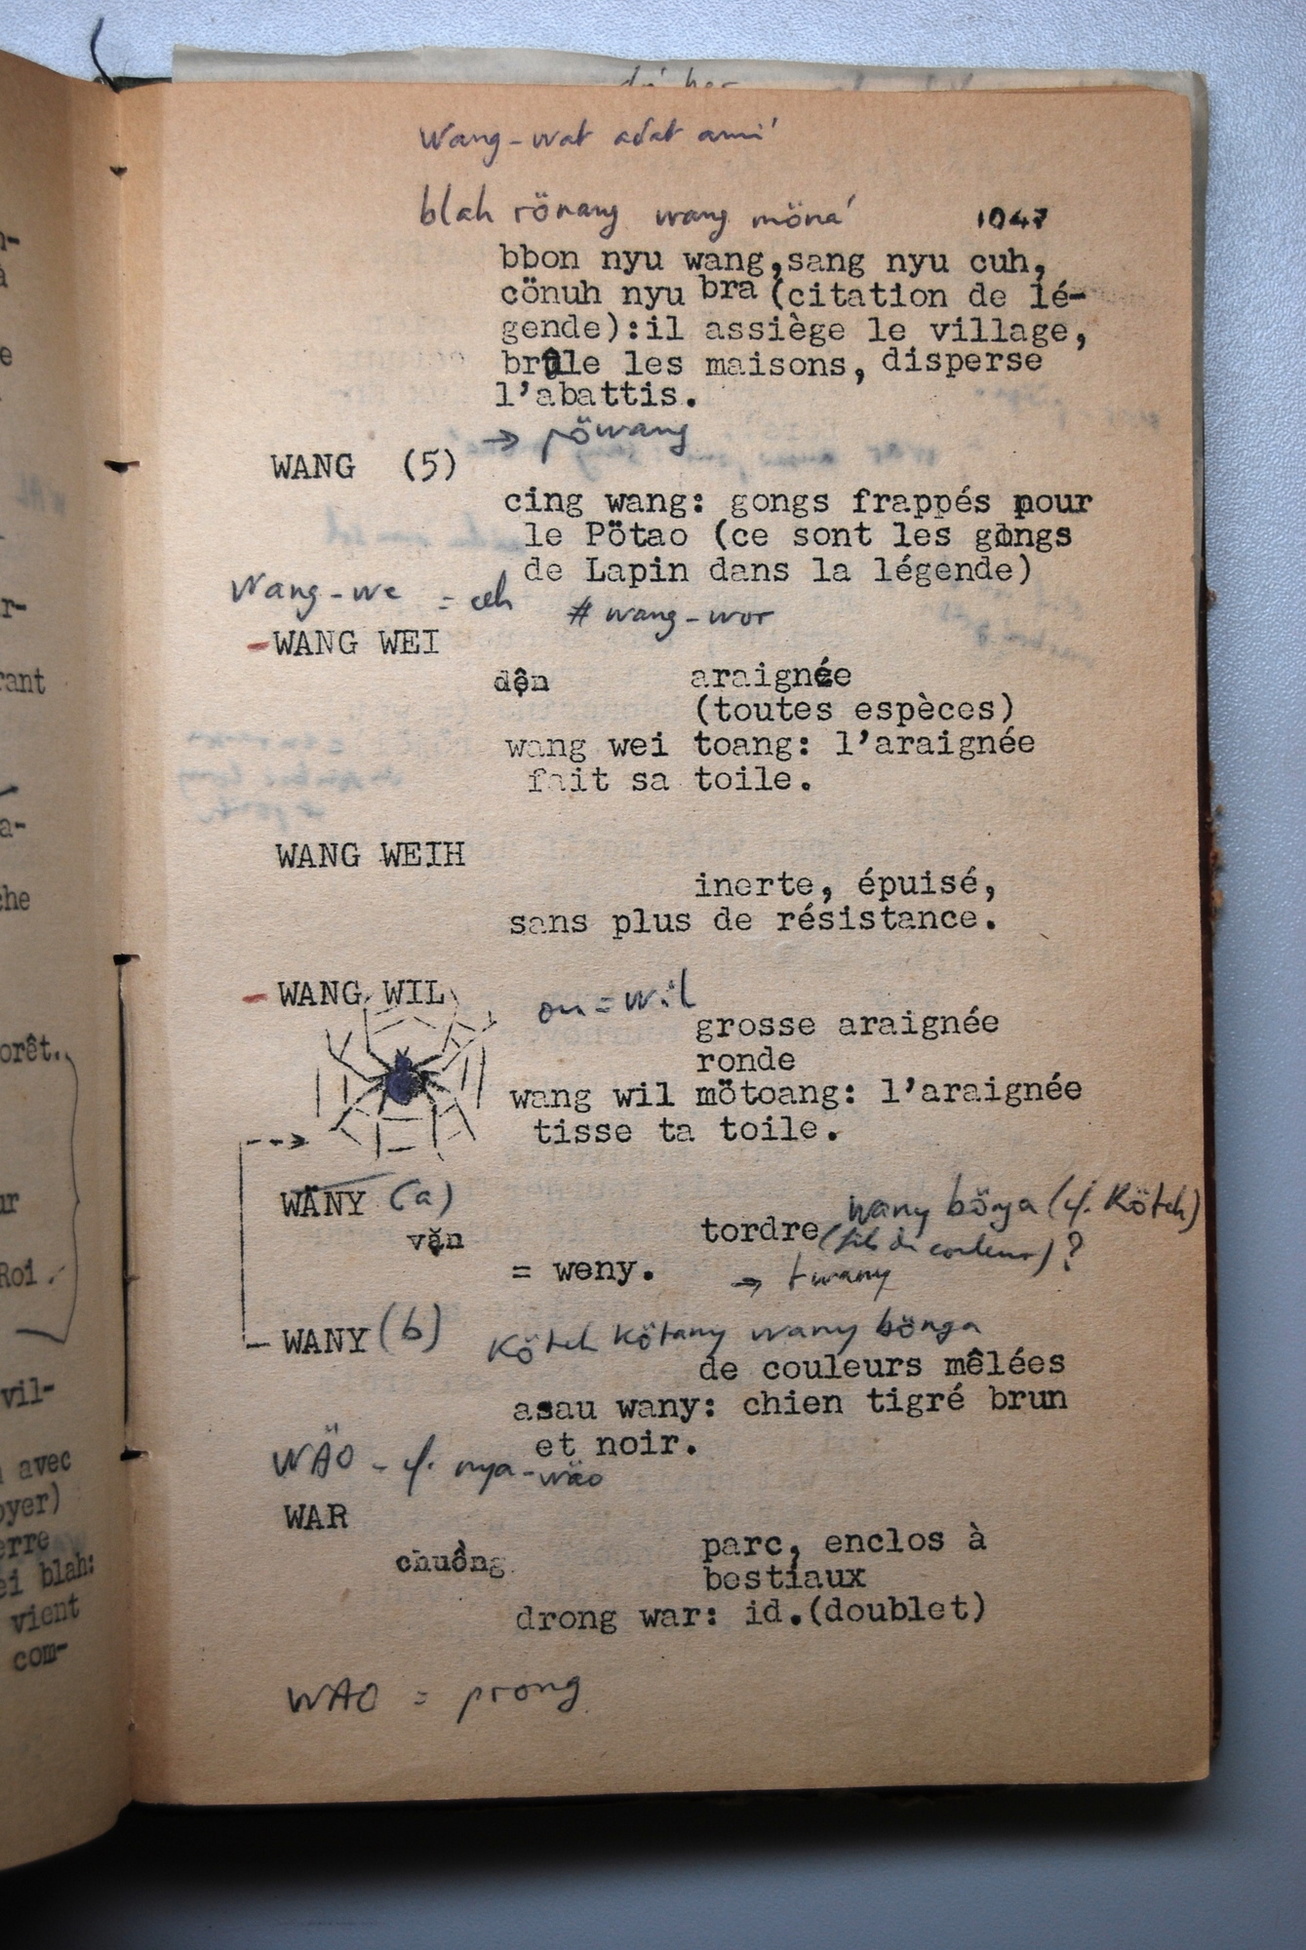 Wang-wat adat ami'
blah rönang wang möna'
1047
bbon nyu wang,sang nyu cuh,
cönuh nyu bra (citation de lé-
gende):il assiège le village,
brûle les maisons, disperse
l'abattis.
→ pöwang
WANG (5)
cing wang: gongs frappés pour
le Pötao (ce sont les gongs
de Lapin dans la légende)
Wang-we =
# wang-wor
-WANG WEI
dện araignée
(toutes espèces)
wang wei toang: l'araignée
fait sa toile.
WANG WEIH
inerte, épuisé,
sans plus de résistance.
- WANG WIL
ou = wil
grosse araignée
ronde
wang wil mötoang: l'araignée
tisse ta toile.
WANY (a)
wany bönga (cf. Kötch)
vặn tordre (fils de couleur) ?
= weny. → twany
- WANY (b) Kötch kötany wany bönga
de couleurs mêlées
asau wany: chien tigré brun
et noir.
WÄO - cf. nya-wäo
WAR
chuồng parc, enclos à
bestiaux
drong war: id.(doublet)
WAO = prong
n-
à
e
r-
rant
a-
che
orêt.
ur
Roi.
vil-
avec
oyer)
erre
ei blah:
vient
com-